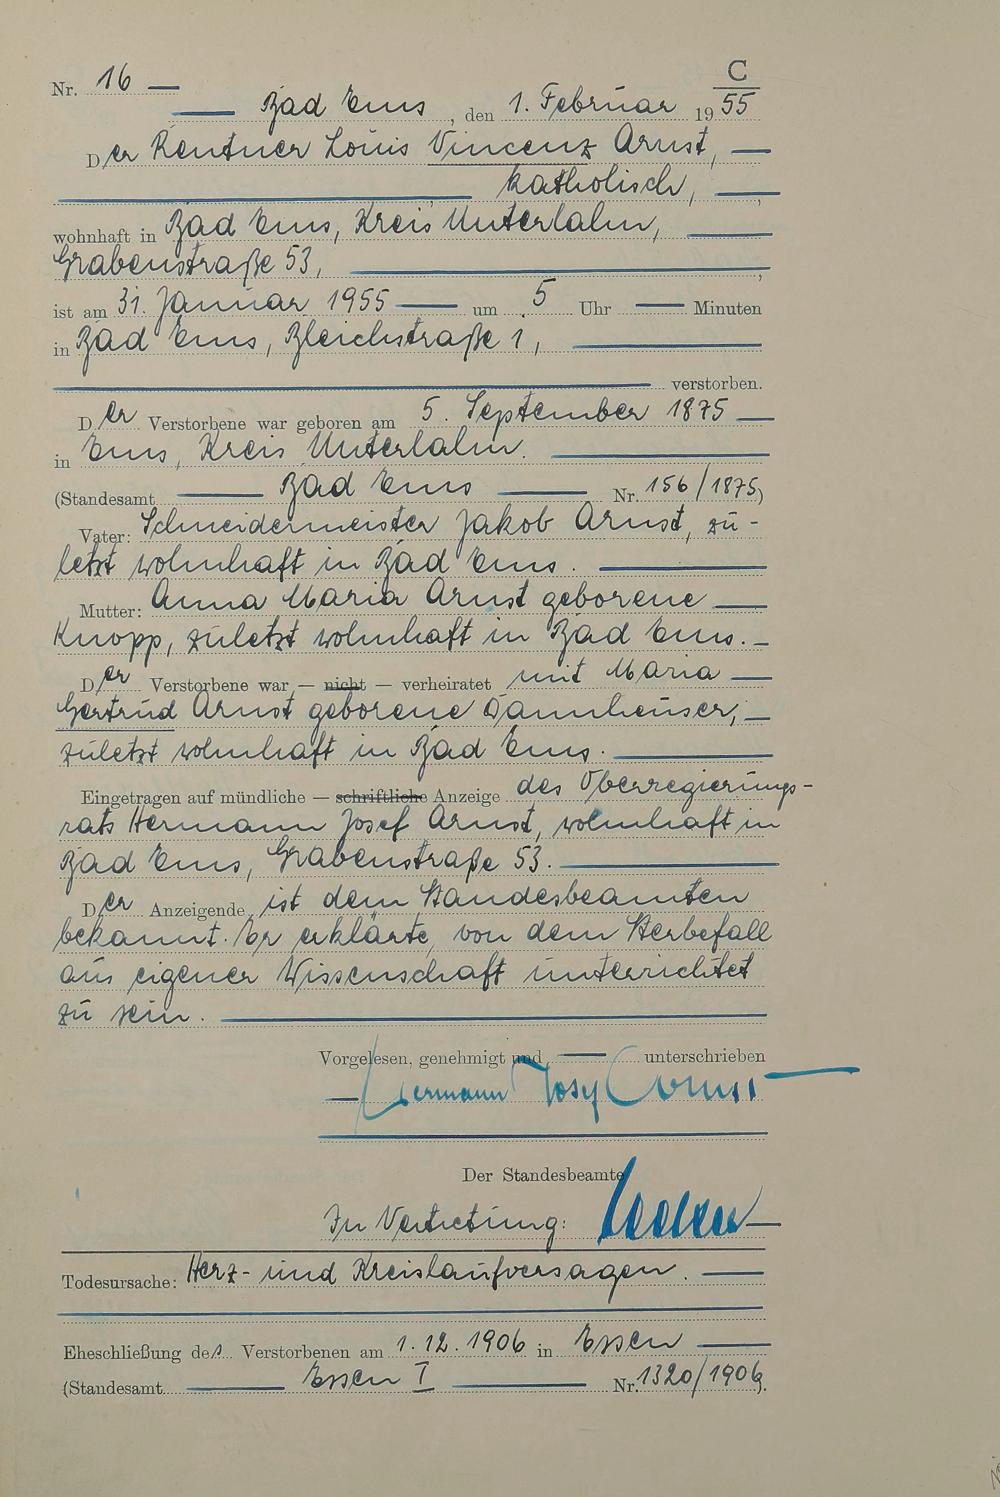 C
Nr. 16 —
— Bad Ems, den 1. Februar 1955
Der Rentner Louis Vincenz Arnst, —
katholisch, —
wohnhaft in Bad Ems, Kreis Unterlahn, —
Grabenstraße 53, —
ist am 31. Januar 1955 — um 5 Uhr — Minuten
in Bad Ems, Bleichstraße 1, —
— verstorben.
Der Verstorbene war geboren am 5. September 1875 —
in Ems, Kreis Unterlahn. —
(Standesamt — Bad Ems — Nr. 156/1875)
Vater: Schneidermeister Jakob Arnst, zu-
letzt wohnhaft in Bad Ems. —
Mutter: Anna Maria Arnst geborene —
Knopp, zuletzt wohnhaft in Bad Ems. —
Der Verstorbene war — nicht — verheiratet mit Maria —
Gertrud Arnst geborene Dannheuser, —
zuletzt wohnhaft in Bad Ems. —
Eingetragen auf mündliche — schriftliche Anzeige des Oberregierungs-
rats Hermann Josef Arnst, wohnhaft in
Bad Ems, Grabenstraße 53. —
Der Anzeigende ist dem Standesbeamten
bekannt. Er erklärte, von dem Sterbefall
aus eigener Wissenschaft unterrichtet
zu sein. —
Vorgelesen, genehmigt und — unterschrieben
— Hermann Josef Arnst —
Der Standesbeamte
In Vertretung: —
Todesursache: Herz- und Kreislaufversagen. —
Eheschließung des Verstorbenen am 1.12.1906 in Essen —
(Standesamt — Essen I — Nr. 1320/1906).